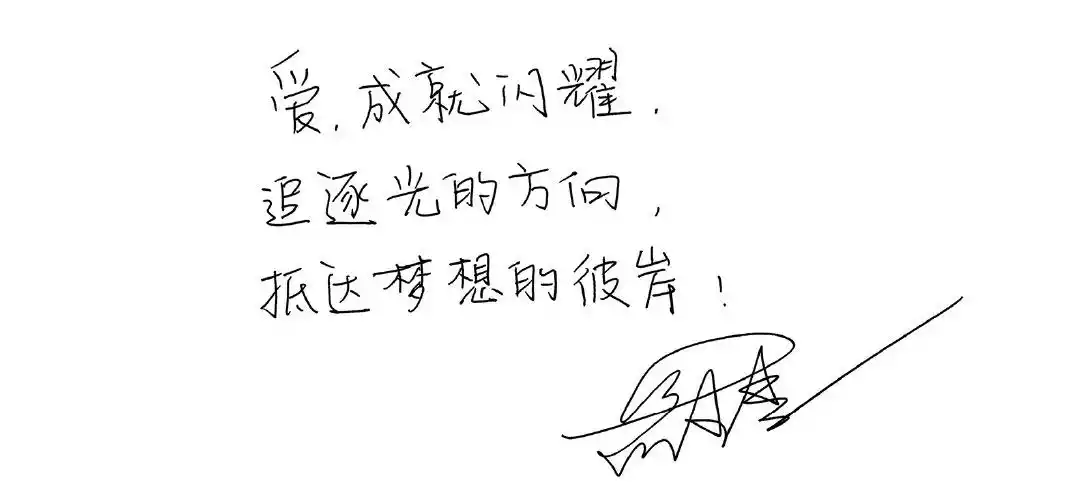 爱,成就闪耀.
追逐光的方向,
抵达梦想的彼岸!